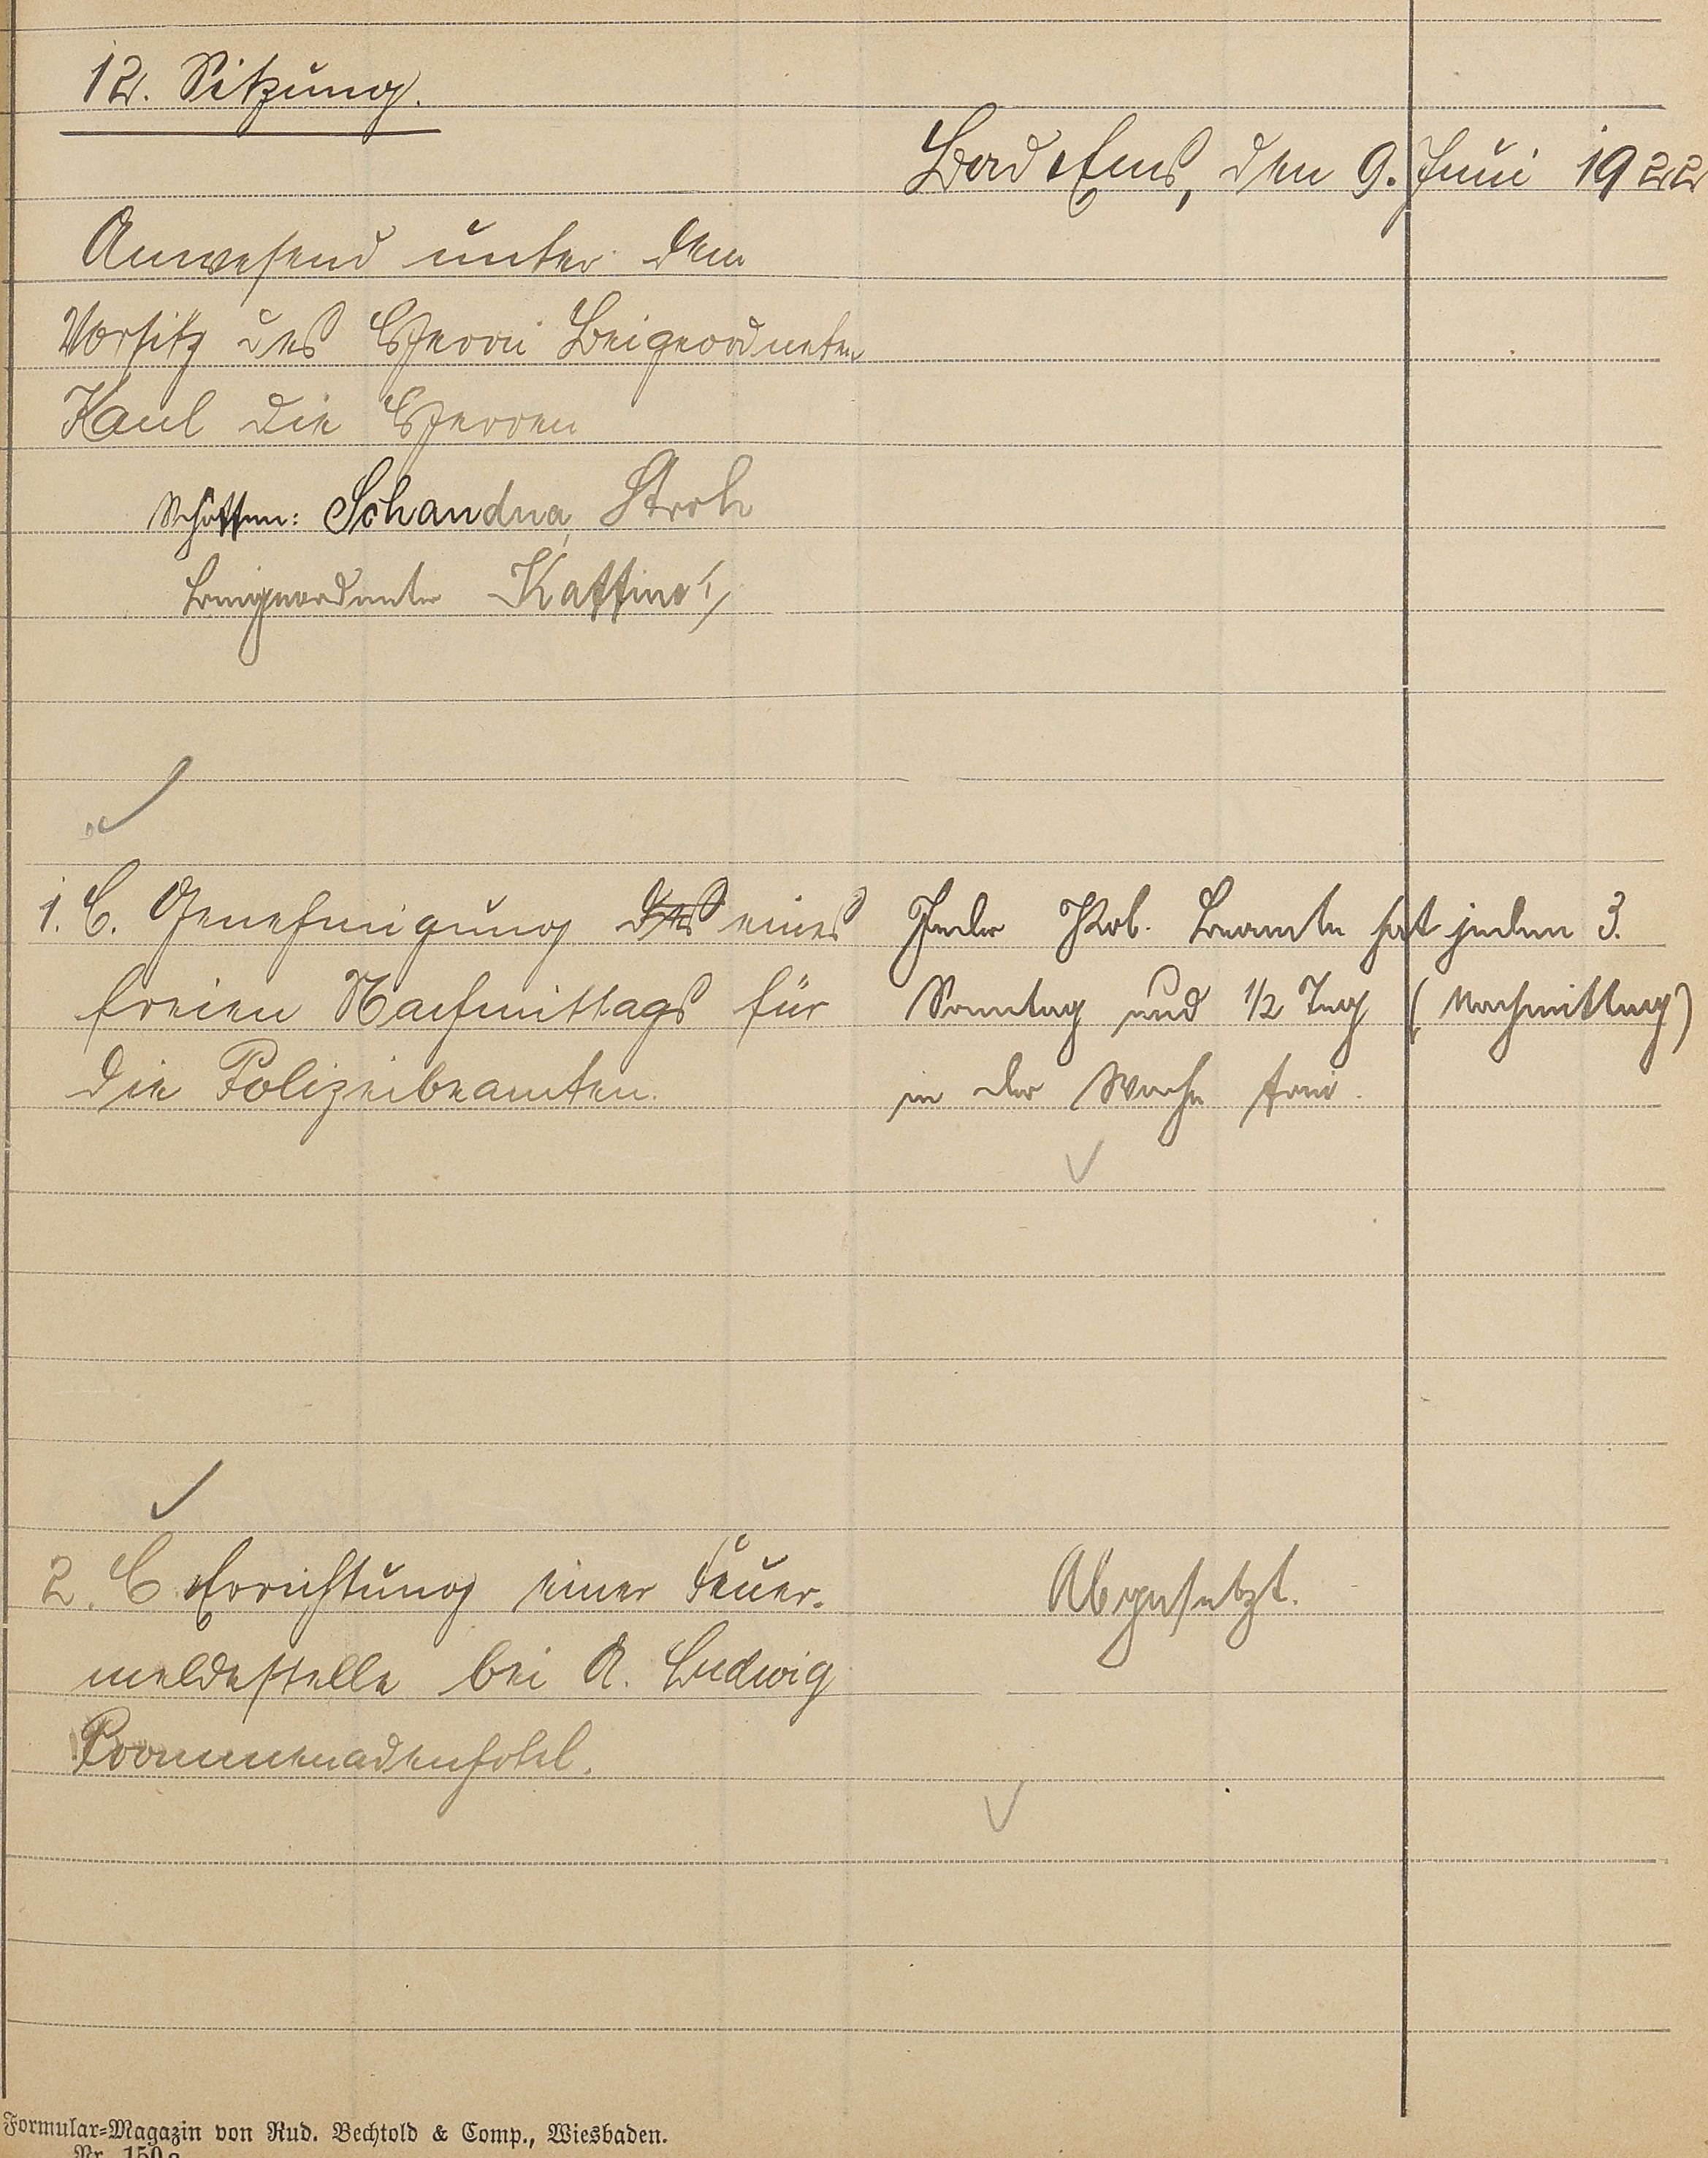 12. Sitzung.
Bad Ems, den 9. Juni 1922
Anwesend unter dem
Vorsitz des Herrn Beigeordneten
Kaul die Herren
Schöffen: Schandua, Stroh
Beigeordneter
1. C. Genehmigung des eines
freien Nachmittags für
die Polizeibeamten.
Jeder Pol. Beamte hat jeden 3.
Sonntag und 1/2 Tag (Nachmittag)
in der Woche frei.
2. C Errichtung einer Feuer-
meldestelle bei A. Ludwig
Prommenadenhotel.
Abgesetzt.
Formular-Magazin von Rud. Bechtold & Comp., Wiesbaden.
Nr. 150a